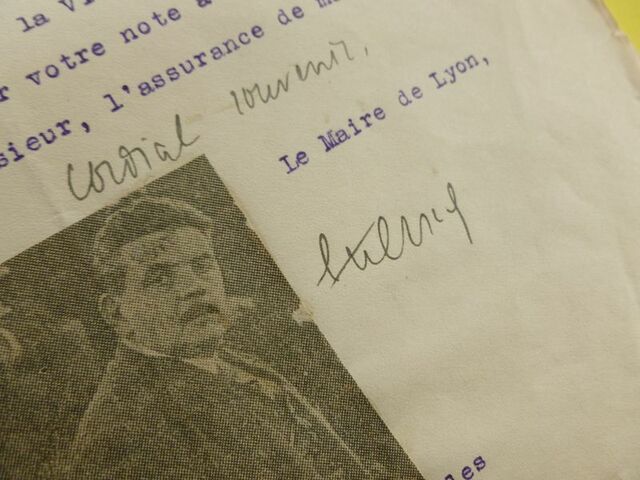 la
r votre note à
sieur, l'assurance de m
cordial souvenir,
Le Maire de Lyon,
les